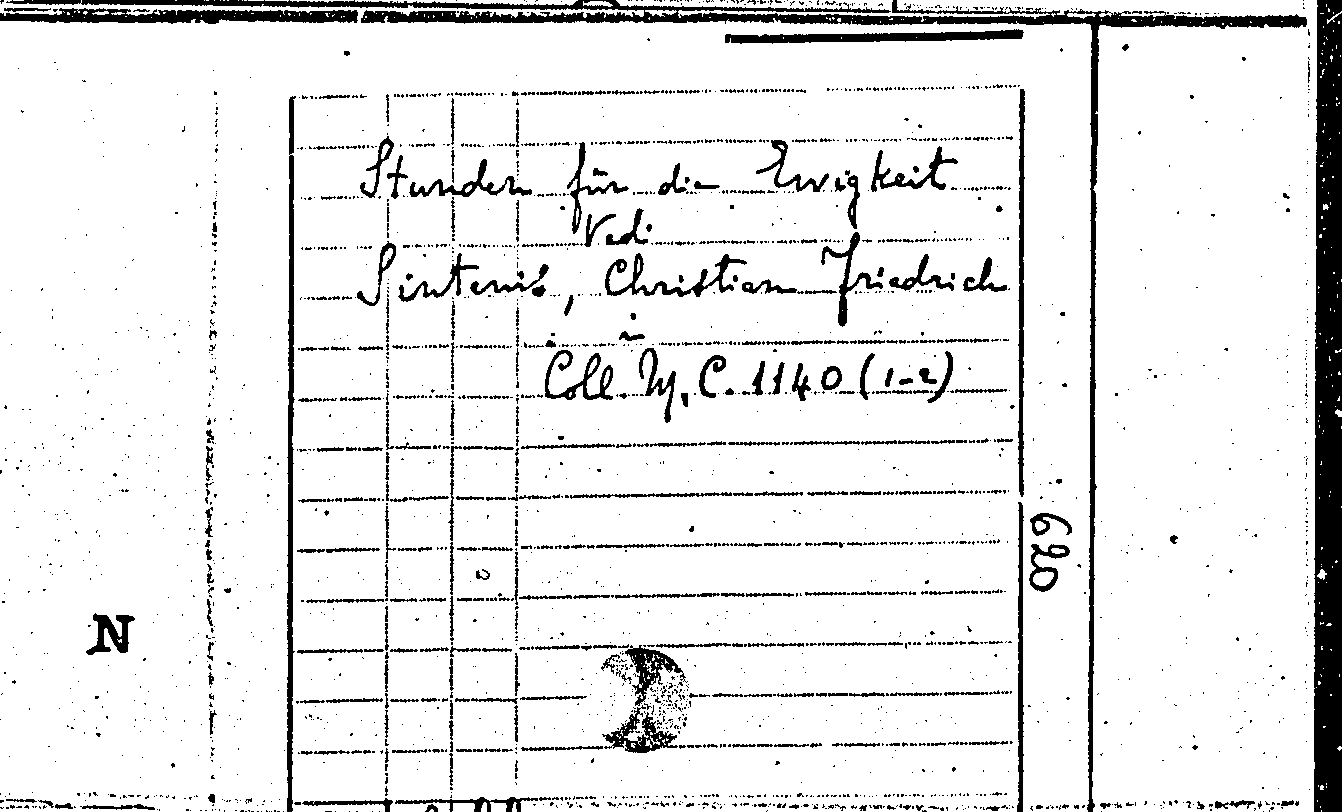 Stunden für die Ewigkeit
Vedi
Sintenis, Christian Friedrich
Coll. M. C. 1140 (1-2)
620
N